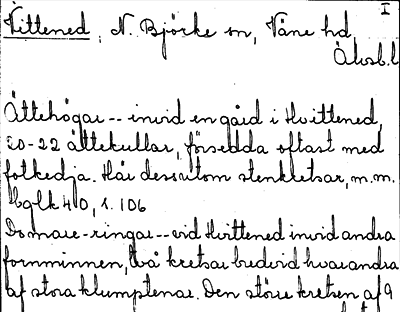 I
Vittened, N. Björke sn, Väne hd,
Älvsb.l
Ättehögar -- invid en gård i Hvittened,
20-22 ättekullar, försedda oftast med
fotkedja. Här dessutom stenkretsar, m.m.
Hbglk 40, s. 106
Domare-ringar -- vid Hvittened invid andra
fornminnen, två kretsar bredvid hvarandra
af stora klumpstenar. Den större kretsen af 9